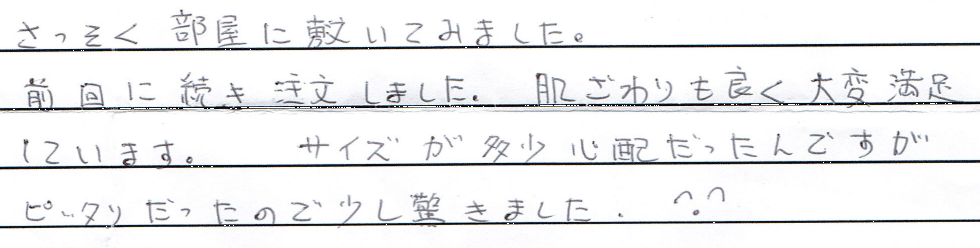 さっそく部屋に敷いてみました。
前回に続き注文しました。肌ざわりも良く大変満足
しています。 サイズが多少心配だったんですが
ピッタリだったので少し驚きました. ^.^